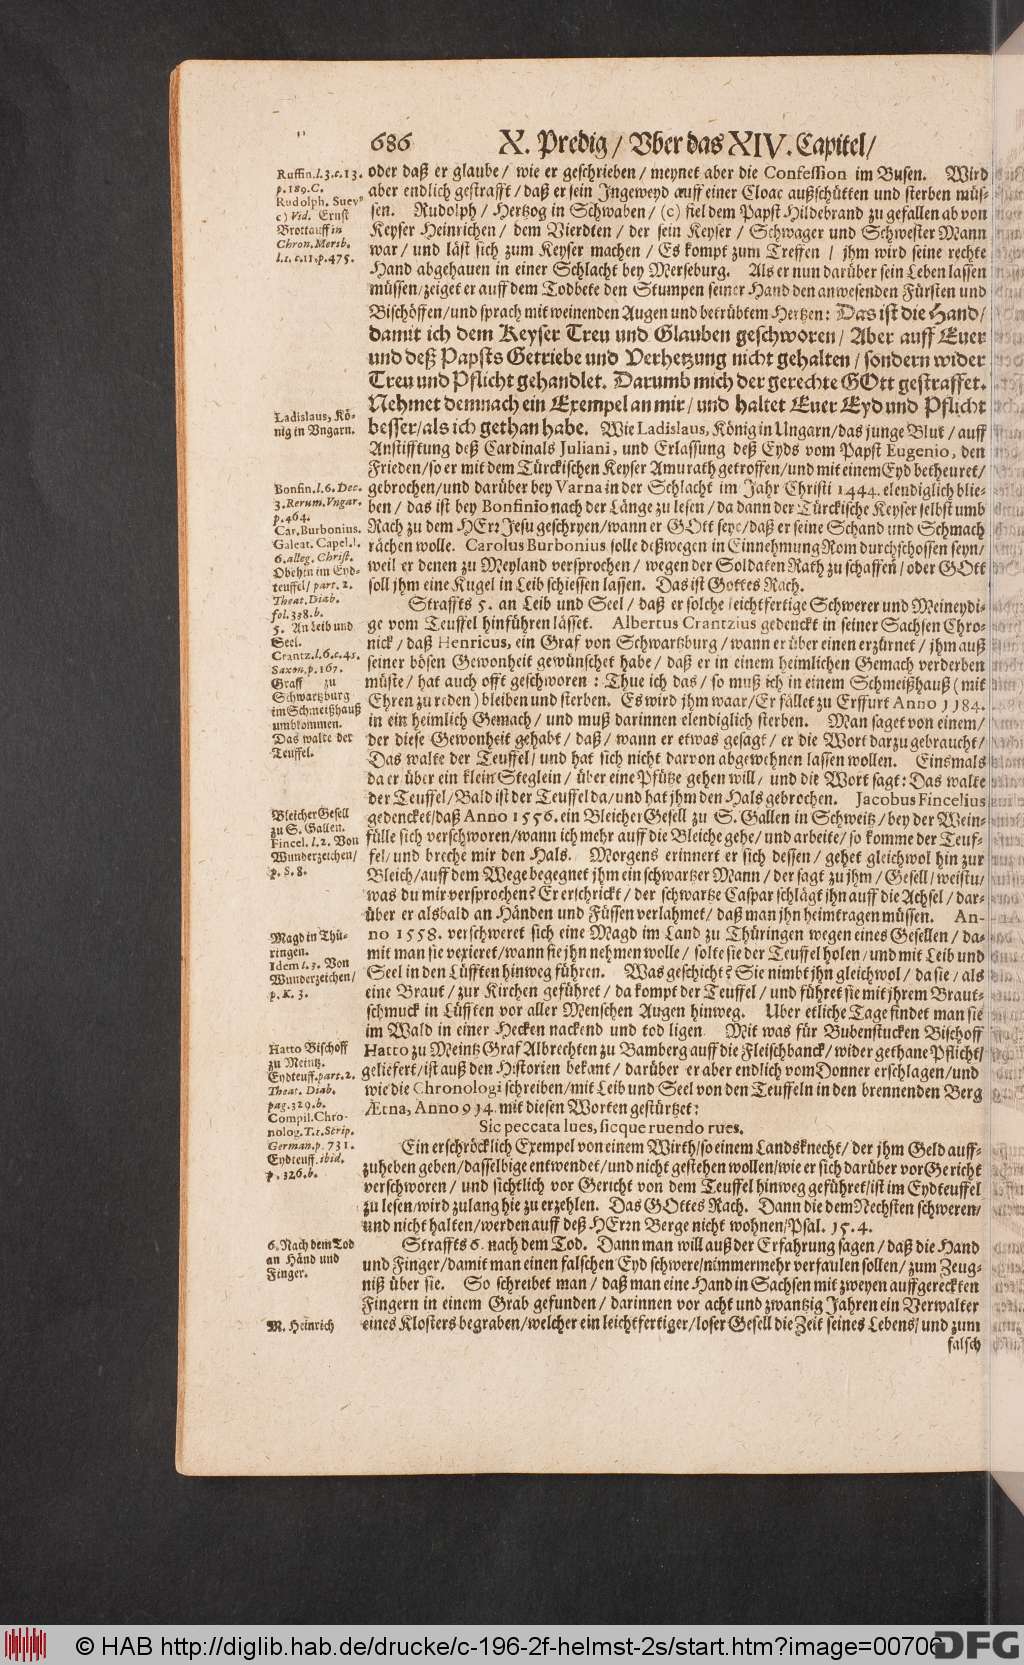 686 X. Predig / Vber das XIV. Capitel /
oder daß er glaube / wie er geschrieben / meynet aber die Confession im Busen. Wird
aber endlich gestrafft / daß er sein Ingeweyd auff einer Cloac außschütten und sterben müs-
sen. Rudolph / Hertzog in Schwaben / (c) fiel dem Papst Hildebrand zu gefallen ab von
Keyser Heinrichen / dem Vierdten / der sein Keyser / Schwager und Schwester Mann
war / und läst sich zum Keyser machen / Es kompt zum Treffen / jhm wird seine rechte
Hand abgehauen in einer Schlacht bey Merseburg. Als er nun darüber sein Leben lassen
müssen / zeiget er auff dem Todbete den Stumpen seiner Hand den anwesenden Fürsten und
Bischöffen / und sprach mit weinenden Augen und betrübtem Hertzen: Das ist die Hand /
damit ich dem Keyser Treu und Glauben geschworen / Aber auff Euer
und deß Papsts Getriebe und Verhetzung nicht gehalten / sondern wider
Treu und Pflicht gehandlet. Darumb mich der gerechte GOtt gestraffet.
Nehmet demnach ein Exempel an mir / und haltet Euer Eyd und Pflicht
besser / als ich gethan habe. Wie Ladislaus, König in Ungarn / das junge Blut / auff
Anstifftung deß Cardinals Juliani, und Erlassung deß Eyds vom Papst Eugenio, den
Frieden / so er mit dem Türckischen Keyser Amurath getroffen / und mit einem Eyd betheuret /
gebrochen / und darüber bey Varna in der Schlacht im Jahr Christi 1444. elendiglich blie-
ben / das ist bey Bonfinio nach der Länge zu lesen / da dann der Türckische Keyser selbst umb
Rach zu dem HErr Jesu geschryen / wann er GOtt seye / daß er seine Schand und Schmach
rächen wolle. Carolus Burbonius solle deßwegen in Einnehmung Rom durchschossen seyn /
weil er denen zu Meyland versprochen / wegen der Soldaten Rath zu schaffen / oder GOtt
soll jhm eine Kugel in Leib schiessen lassen. Das ist Gottes Rach.
Straffts 5. an Leib und Seel / daß er solche leichtfertige Schwerer und Meineydi-
ge vom Teuffel hinführen lässet. Albertus Crantzius gedenckt in seiner Sachsen Chro-
nick / daß Henricus, ein Graf von Schwartzburg / wann er über einen erzürnet / jhm auß
seiner bösen Gewonheit gewünschet habe / daß er in einem heimlichen Gemach verderben
müste / hat auch offt geschworen: Thue ich das / so muß ich in einem Schmeißhauß (mit
Ehren zu reden) bleiben und sterben. Es wird jhm waar / Er fället zu Erffurt Anno 1184.
in ein heimlich Gemach / und muß darinnen elendiglich sterben. Man saget von einem /
der diese Gewonheit gehabt / daß / wann er etwas gesagt / er die Wort darzu gebraucht /
Das walte der Teuffel / und hat sich nicht darvon abgewehnen lassen wollen. Einsmals
da er über ein klein Steglein / über eine Pfütze gehen will / und die Wort sagt: Das walte
der Teuffel / Bald ist der Teuffel da / und hat jhm den Hals gebrochen. Jacobus Fincelius
gedencket / daß Anno 1556. ein Bleicher Gesell zu S. Gallen in Schweitz / bey der Wein-
fülle sich verschworen / wann ich mehr auff die Bleiche gehe / und arbeite / so komme der Teuf-
fel / und breche mir den Hals. Morgens erinnert er sich dessen / gehet gleichwol hin zur
Bleich / auff dem Wege begegnet jhm ein schwartzer Mann / der sagt zu jhm / Gesell / weistu /
was du mir versprochen? Er erschrickt / der schwartze Caspar schlägt jhn auff die Achsel / dar-
über er alsbald an Händen und Füssen verlahmet / daß man jhn heimtragen müssen. An-
no 1558. verschweret sich eine Magd im Land zu Thüringen wegen eines Gesellen / da-
mit man sie vexieret / wann sie jhn nehmen wolle / solte sie der Teuffel holen / und mit Leib und
Seel in den Lüfften hinweg führen. Was geschicht? Sie nimbt jhn gleichwol / da sie / als
eine Braut / zur Kirchen geführet / da kompt der Teuffel / und führet sie mit jhrem Braut-
schmuck in Lüfften vor aller Menschen Augen hinweg. Uber etliche Tage findet man sie
im Wald in einer Hecken nackend und tod ligen. Mit was für Bubenstucken Bischoff
Hatto zu Meintz Graf Albrechten zu Bamberg auff die Fleischbanck / wider gethane Pflicht /
geliefert / ist auß den Historien bekant / darüber er aber endlich vom Donner erschlagen / und
wie die Chronologi schreiben / mit Leib und Seel von den Teuffeln in den brennenden Berg
Ætna, Anno 914. mit diesen Worten gestürtzet:
Sic peccata lues, sicque ruendo rues.
Ein erschröcklich Exempel von einem Wirth / so einem Landsknecht / der jhm Geld auff-
zuheben geben / dasselbige entwendet / und nicht gestehen wollen / wie er sich darüber vor Gericht
verschworen / und sichtlich vor Gericht von dem Teuffel hinweg geführet / ist im Eydteuffel
zu lesen / wird zulang hie zu erzehlen. Das GOttes Rach. Dann die dem Nechsten schweren /
und nicht halten / werden auff deß HErrn Berge nicht wohnen / Psal. 15. 4.
Straffts 6. nach dem Tod. Dann man will auß der Erfahrung sagen / daß die Hand
und Finger / damit man einen falschen Eyd schwere / nimmermehr verfaulen sollen / zum Zeug-
niß über sie. So schreibet man / daß man eine Hand in Sachsen mit zweyen auffgereckten
Fingern in einem Grab gefunden / darinnen vor acht und zwantzig Jahren ein Verwalter
eines Klosters begraben / welcher ein leichtfertiger / loser Gesell die Zeit seines Lebens / und zum
falsch
Ruffin. l. 3. c. 13.
p. 189. C.
Rudolph. Suev.
c) Vid. Ernst
Brottauff in
Chron. Mersb.
l. 1. c. 11. p. 475.
Ladislaus, Kö-
nig in Vngarn.
Bonfin. l. 6. Dec.
3. Rerum. Vngar.
p. 464.
Car. Burbonius.
Galeat. Capel. l.
6. alleg. Christ.
Obehtn im Eyd-
teuffel / part. 2.
Theat. Diab.
fol. 338. b.
5. An Leib und
Seel.
Crantz. l. 6. c. 45.
Saxon. p. 167.
Graff zu
Schwartzburg
im Schmeißhauß
umbkommen.
Das walte der
Teuffel.
Bleicher Gesell
zu S. Gallen.
Fincel. l. 2. Von
Wunderzeichen /
p. S. 8.
Magd in Thü-
ringen.
Idem l. 3. Von
Wunderzeichen /
p. K. 3.
Hatto Bischoff
zu Meintz.
Eydteuff. part. 2.
Theat. Diab.
pag. 329. b.
Compil. Chro-
nolog. T. 1. Scrip.
German. p. 731.
Eydteuff. ibid.
p. 326. b.
6. Nach dem Tod
an Händ und
Finger.
M. Heinrich
© HAB http://diglib.hab.de/drucke/c-196-2f-helmst-2s/start.htm?image=00706
DFG